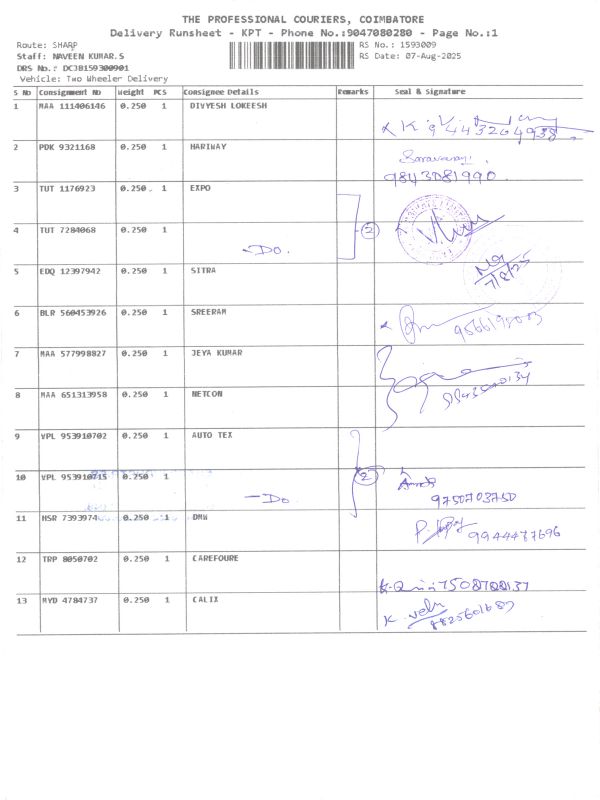 THE PROFESSIONAL COURIERS, COIMBATORE
Delivery Runsheet - KPT - Phone No.:9047080280 - Page No.:1
Route: SHARP RS No.: 1593009
Staff: NAVEEN KUMAR.S RS Date: 07-Aug-2025
DRS No.: DCJB159300901
Vehicle: Two Wheeler Delivery
S No Consignment No Weight PCS Consignee Details Remarks Seal & Signature
1 MAA 111406146 0.250 1 DIVYESH LOKEESH
2 PDK 9321168 0.250 1 HARIWAY
9843081990
3 TUT 1176923 0.250 1 EXPO
4 TUT 7284068 0.250 1 -Do. 2
5 EDQ 12397942 0.250 1 SITRA
6 BLR 560453926 0.250 1 SREERAM
7 MAA 577998827 0.250 1 JEYA KUMAR
8 MAA 651313958 0.250 1 NETCON
9 VPL 953910702 0.250 1 AUTO TEX
10 VPL 953910715 0.250 1 -Do. 2
9750703750
11 HSR 7393974 0.250 1 DMW
9944477696
12 TRP 8050702 0.250 1 CAREFOURE
13 MYD 4784737 0.250 1 CALIX